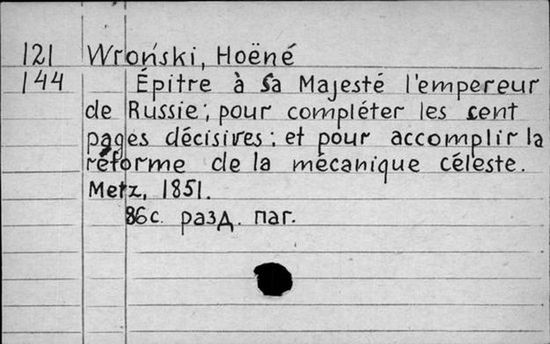 121 Wroński, Hoëné
144 Épitre à Sa Majesté l'empereur
de Russie; pour compléter les cent
pages décisives; et pour accomplir la
réforme de la mécanique céleste.
Metz, 1851.
86 с. разд. паг.